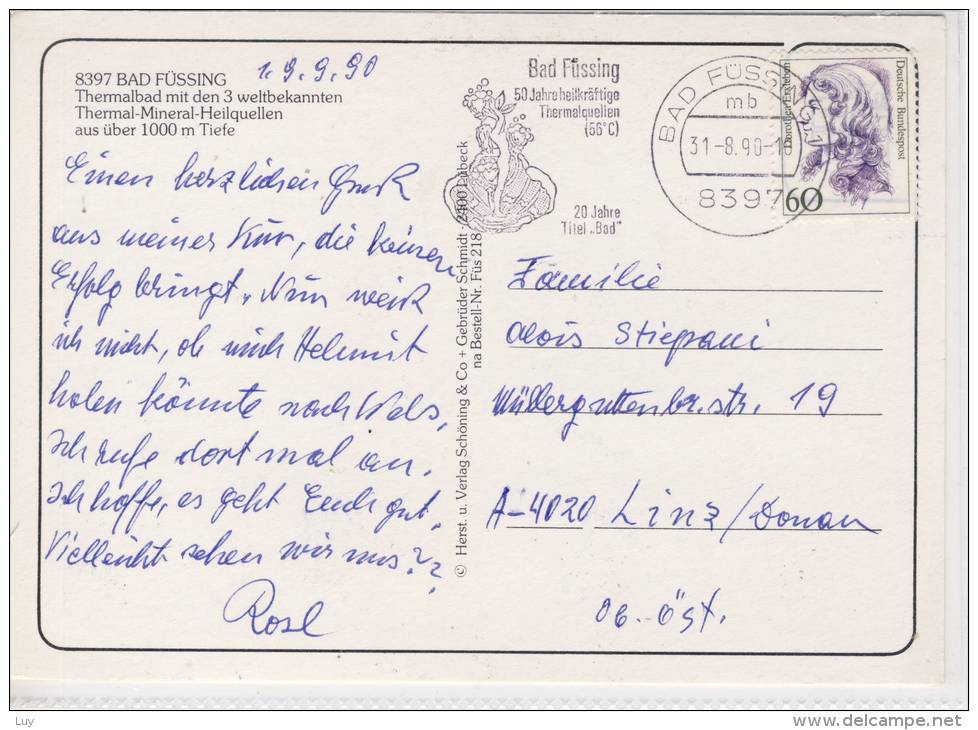 8397 BAD FÜSSING
Thermalbad mit den 3 weltbekannten
Thermal-Mineral-Heilquellen
aus über 1000 m Tiefe
1.9.9.90
Einen herzlichen Gruß
aus meiner Kur, die keinen
Erfolg bringt. Nun weiß
ich nicht, ob mich Helmut
holen könnte nach Wels,
Ich rufe dort mal an.
Ich hoffe, es geht Euch gut.
Vielleicht sehen wir uns??
Rosl
© Herst. u. Verlag Schöning & Co + Gebrüder Schmidt · 2400 Lübeck
na Bestell-Nr. Füs 218
Bad Füssing
50 Jahre heilkräftige
Thermalquellen
(56°C)
20 Jahre
Titel „Bad"
BAD FÜSSING
mb
31-8.90-18
8397
60
Deutsche Bundespost
Familie
Alois Stiepani
Müllerguttenbr.str. 19
A-4020 Linz/Donau
Ob. Öst.
Luy